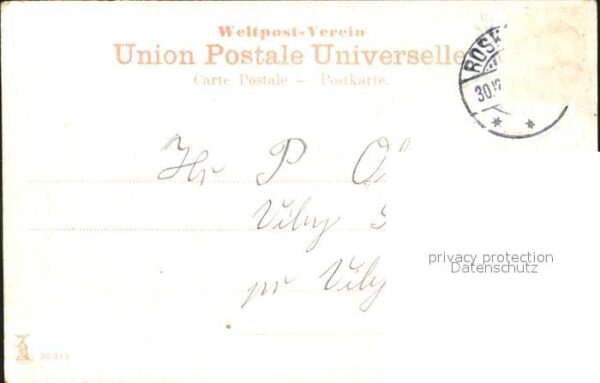 Weltpost-Verein
Union Postale Universelle
Carte Postale – Postkarte.
ROSK
30.12
Hr P
Viby S
pr Viby
privacy protection
Datenschutz